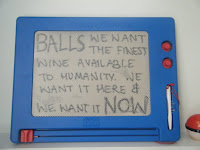 BALLS WE WANT
THE FINEST
WINE AVAILABLE
TO HUMANITY. WE
WANT IT HERE &
WE WANT IT NOW